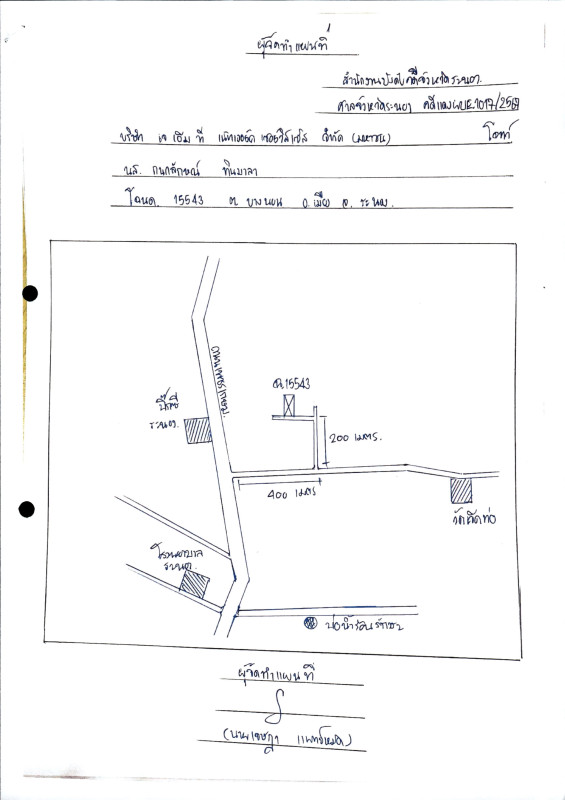 ผู้จัดทำแผนที่
สำนักงานบังคับคดีจังหวัดระนอง
ศาลจังหวัดระนอง คดีแดง ผบE.1017/25
บริษัท เจ เอ็ม ที เน็ทเวอร์ค เซอร์วิสเซ็ส จำกัด (มหาชน) โจทก์
นส. กนกลักษณ์ ทินมาลา
โฉนด. 15543 ต. บางนอน อ. เมือง จ. ระนอง.
ถนนเพชรเกษม.
ฉ. 15543
บิ๊กซี
ระนอง.
200 เมตร.
400 เมตร
โรงพยาบาล
ระนอง.
บ่อน้ำร้อนรักษะ
ผู้จัดทำแผนที่